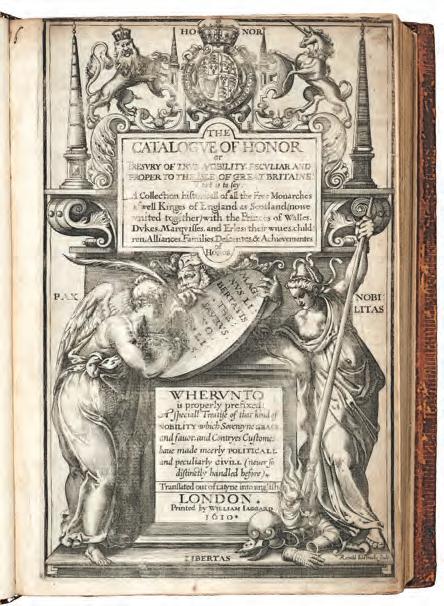 HONOR
THE
CATALOGVE OF HONOR
or
TRESVRY OF TRVE NOBILITY PECVLIAR AND
PROPER TO THE ISLE OF GREAT BRITAINE
That is to say
A Collection historicall of all the Free Monarches
as well Kinges of England as Scotland (nowe
vnited together) with the Princes of Walles,
Dvkes, Marqvisses, and Erles; their wiues, child
ren, Alliances, Families, Descentes, & Achievementes
of
Honor.
PAX
NOBI
LITAS
WHERVNTO
is properly prefixed:
A speciall Treatise of that kind of
NOBILITY which Soverayne GRACE
and favor, and Contryes Customes
have made meerly POLITICALL
and peculiarly CIVILL (never so
distinctly handled before).
Translated out of Latyne into english
LONDON.
Printed by WILLIAM IAGGARD
1610.
LIBERTAS